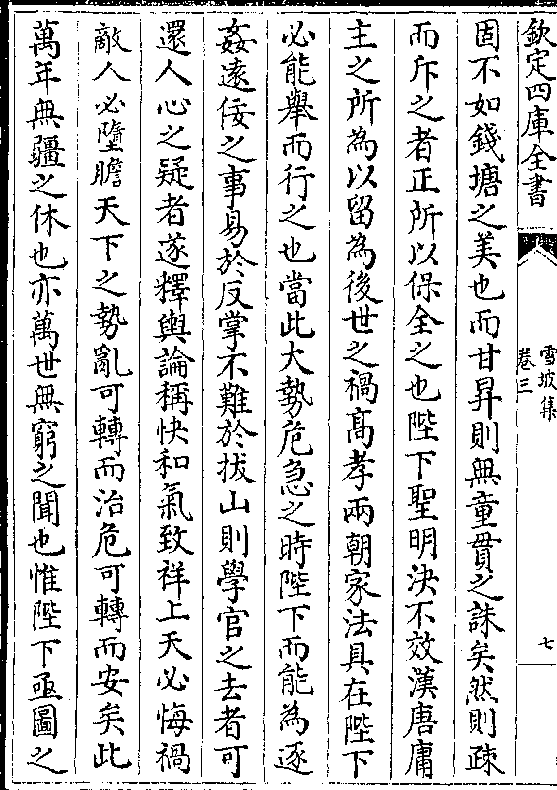 欽定四庫全書
雪坡集
卷三
七
固不如錢塘之美也而甘昇則無童貫之誅矣然則疎
而斥之者正所以保全之也陛下聖明決不效漢唐庸
主之所為以留為後世之禍髙孝兩朝家法具在陛下
必能舉而行之也當此大勢危急之時陛下而能為逐
姦遠佞之事易於反掌不難於拔山則學官之去者可
還人心之疑者遂釋輿論稱快和氣致祥上天必悔禍
敵人必墮膽天下之勢亂可轉而治危可轉而安矣此
萬年無疆之休也亦萬世無窮之聞也惟陛下亟圖之